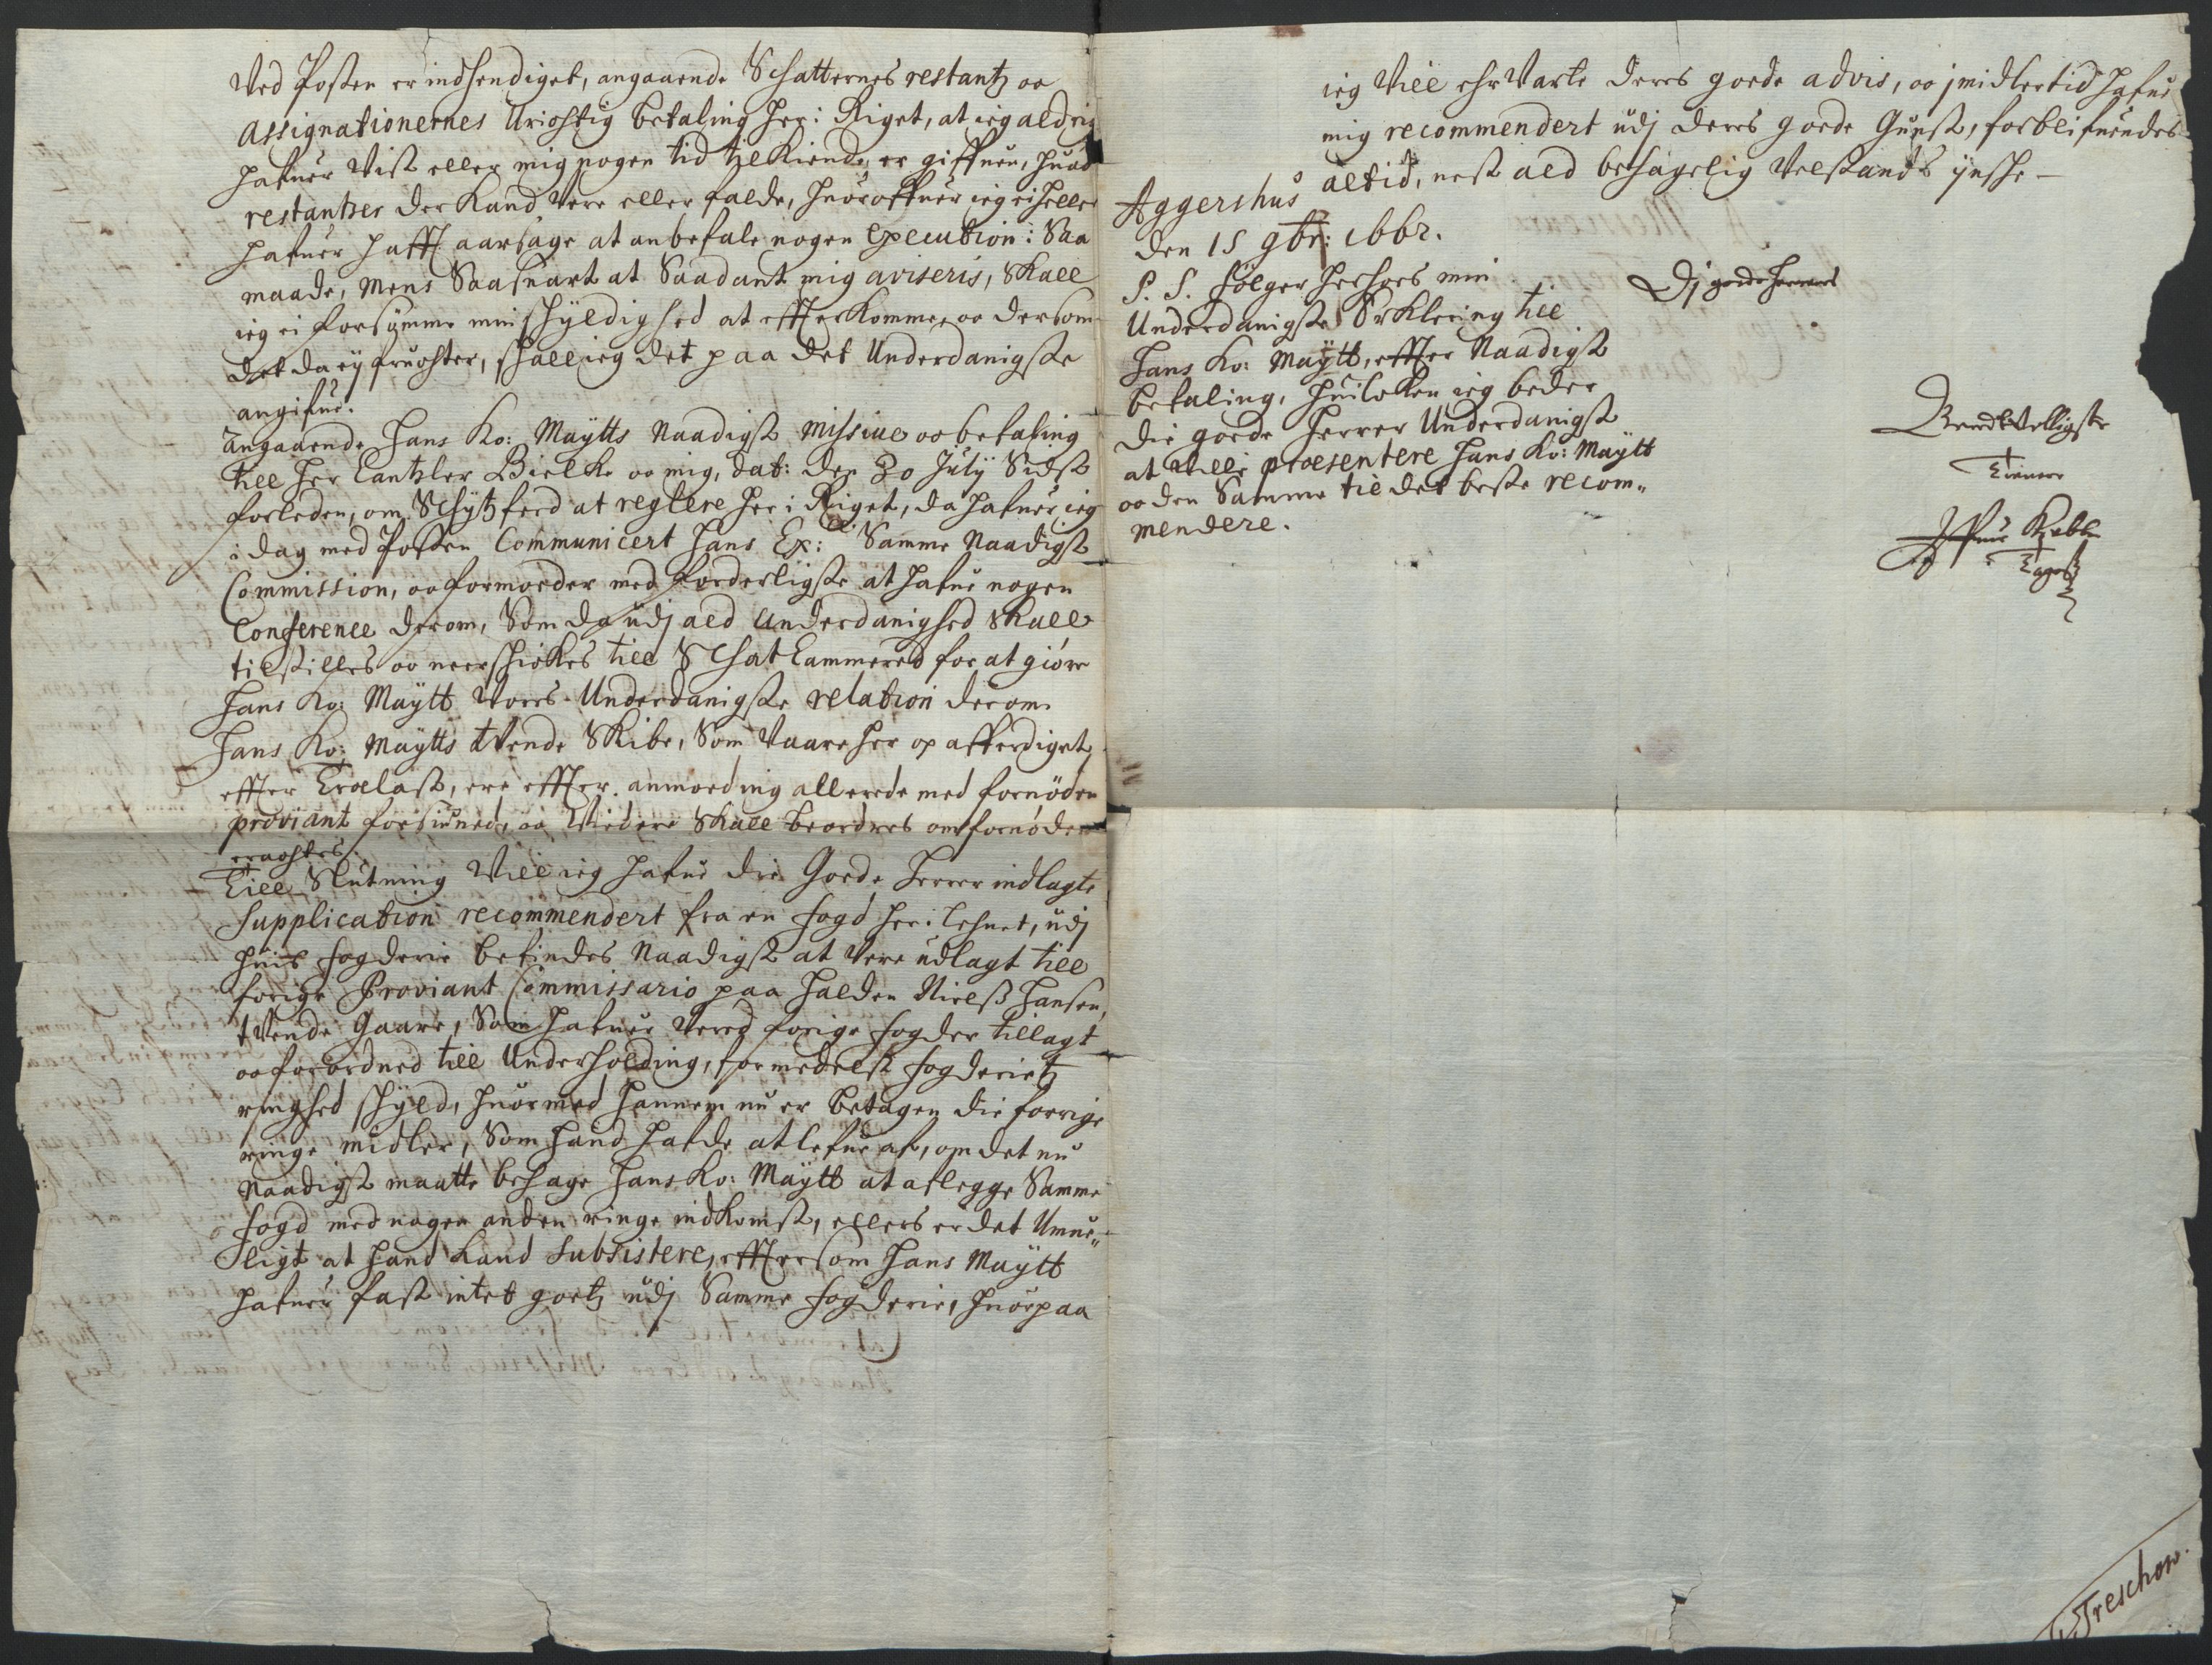 Ved Posten er indhendiget, angaaende Schatternes restantz oc
Assignationernes Urichtig betaling her i Riget, at ieg aldrig
hafuer vist eller mig nogen tid tilkiende er giffuen, huad
restantzer der kand vere eller falde, huoroffuer ieg ei heller
hafuer hafft aarsage at anbefale nogen Execution i Saa
maade, mens Saasnart at Saadant mig aviseris, skall
ieg ei forsømme min schyldighed at effterkomme, oc dersom
det da ey fruchter, schall ieg det paa det Underdanigste
angifue.
Angaaende Hans Ko: Maytts Naadigst missive oc befaling
till Her Cantzler Bielke oc mig, dat: den 30 July Sidst
forleden, om Schytzferd at reglere her i Riget, da hafuer ieg
i dag med Posten Communicert Hans Ex: Samme Naadigst
Commission, oc formoeder med forderligste at hafue nogen
Conference derom, Som da udj ald Underdanighed skall
tilstilles oc neerschickes till Schat Cammered for at giøre
Hans Ko: Maytt vores Underdanigste relation derom
Hans Ko: Maytts tvende Skibe, Som vaare her op afferdiget,
effter Trælast, ere effter anmoeding allerede med fornøden
proviant forsiuned, oc Videre skall beordres om fornøden
erachtes.
Till Slutning vill ieg hafue die Goede Herrer indlagte
Supplication recommendert fra en fogd her i Lehnet, udj
huis fogderie befindes Naadigst at vere udlagt till
forige Proviant Commissario paa Halden Nielss Hansen,
tvende Gaare, Som hafuer vered forige fogder tillagt
oc forordned till Underholding, formedelst fogderietz
ringhed schyld, huormed hannem nu er betagen die forrige
ringe midler, Som hand hafde at lefue af, om det nu
Naadigst maatte behage Hans Ko: Maytt at aflegge Samme
fogd med nogen anden ringe indkomst, ellers er det Umue-
ligt at hand kand Subsistere, efftersom Hans Maytt
hafuer fast intet goetz udj Samme fogderie, huorpaa
ieg vill ehrvarte deres goede advis, oc jmidlertid hafue
mig recommendert udj deres goede Gunst, forblifuendes
altid, nest ald behagelig velstands ynsche
Aggershus
den 15 9br: 1662.
Dj goede herrers
P. S. følger herhoes min
Underdanigste Erklering till
Hans Ko: Maytt, effter Naadigst
befaling, huilcken ieg beder
die goede Herrer Underdanigst
at ville præsentere Hans Ko: Maytt
oc den Samme till det beste recom-
mendere.
Tienere
Iffuer Krabbe
Treschow.